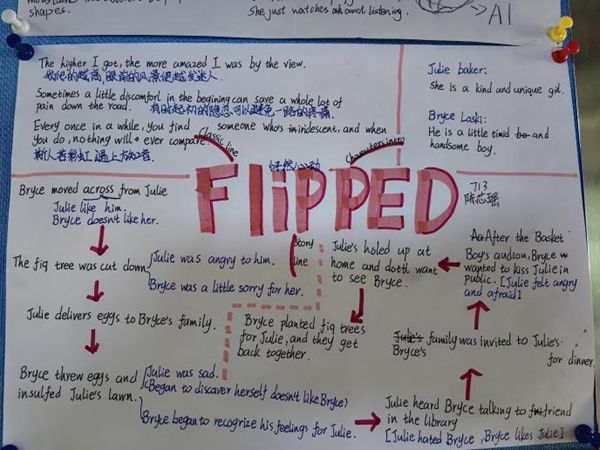 shapes.
She just watches
listening.
AI
The higher I got, the more amazed I was by the view.
我爬的越高,眼前的风景便越发迷人.
Sometimes a little discomforl in the begining can save a whole lot of
pain down the road.
有时起初的隐忍可以避免一路的疼痛.
Every once in a while, you find someone who's iridescent, and when
you do, nothing will ever compare
斯人若彩虹,遇上方知有
Classic line
Characters intro
Julie baker:
She is a kind and unique girl.
Bryce Laski:
He is a little timid and
handsome boy.
怦然心动
FLiPPED
713
Story line
Bryce moved across from Julie
Julie like him.
Bryce doesn't like her.
The fig tree was cut down
Julie was angry to him.
Bryce was a little sorry for her.
Julie delivers eggs to Bryce's family.
Bryce threw eggs and
insulfed Julie's lawn.
Julie was sad.
(Began to discaver herself doesn't like Bryce)
Bryce began to recognize his feelings for Julie.
Julie heard Bryce talking to friend
in the library
[Julie hated Bryce, Bryce likes Julie]
Julie's family was invited to Julie's
Bryce's
for dinner.
After the Basket
Boy's audion, Bryce
wanted to kiss Julie in
public. [Julie felt angry
and afraid]
Julie's holed up at
home and want
to see Bryce.
Bryce planted fig trees
for Julie, and they get
back together.